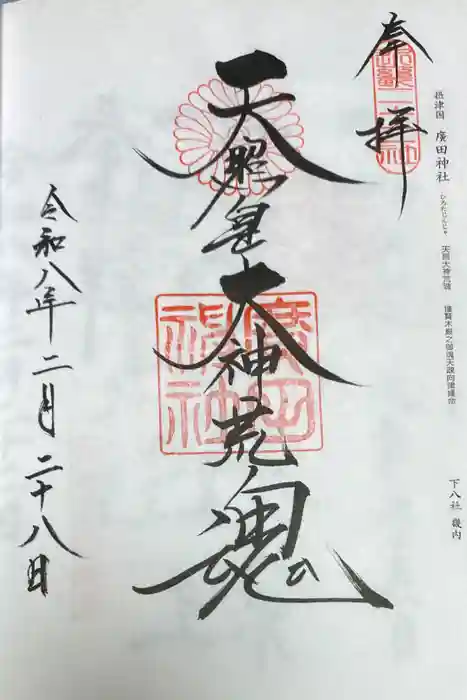 奉拝
摂津国 廣田神社 ひろたじんじゃ 天照大神荒魂 撞賢木厳之御魂天疎向津媛命
下八社 畿内
天照皇大神荒魂
廣田神社
令和八年二月二十八日